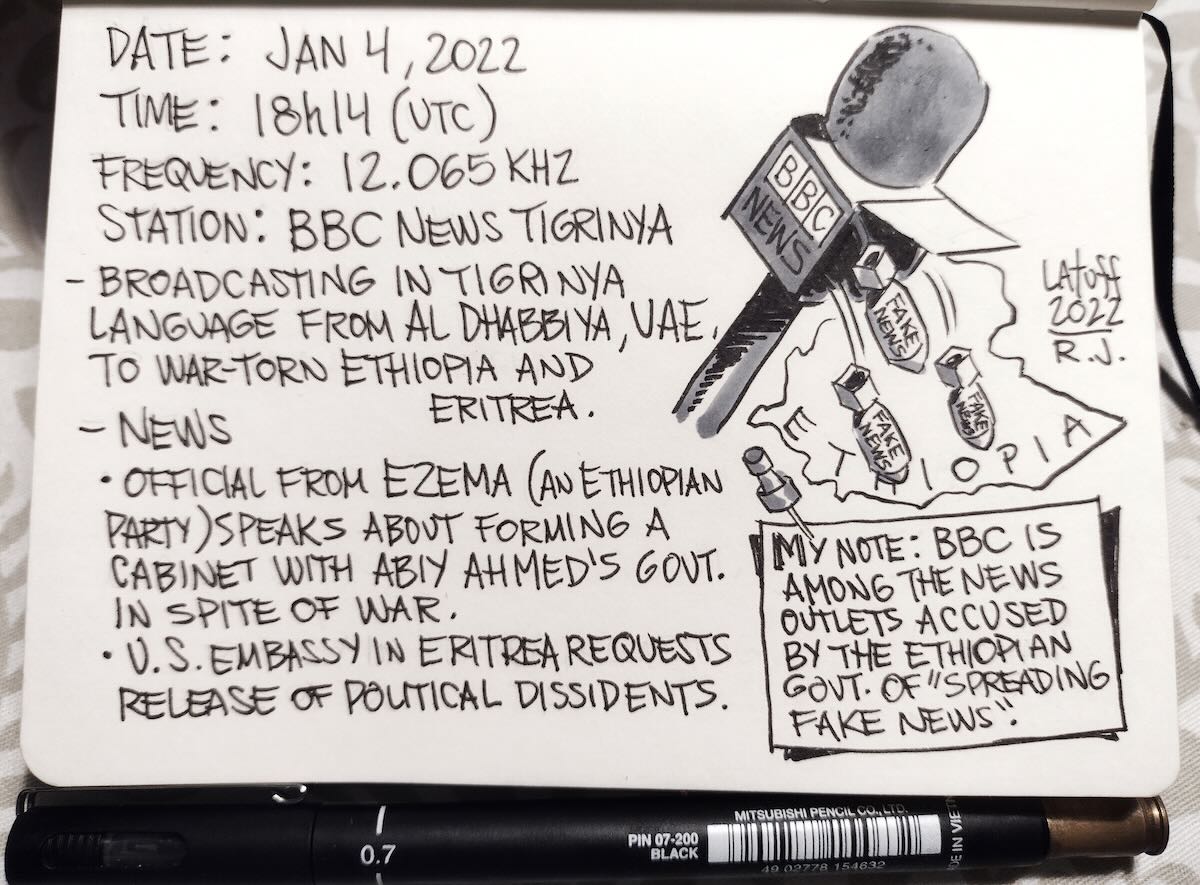 DATE: JAN 4, 2022
TIME: 18h14 (UTC)
FREQUENCY: 12.065 KHZ
STATION: BBC NEWS TIGRINYA
- BROADCASTING IN TIGRINYA
LANGUAGE FROM AL DHABBIYA, UAE.
TO WAR-TORN ETHIOPIA AND
ERITREA.
- NEWS
• OFFICIAL FROM EZEMA (AN ETHIOPIAN
PARTY) SPEAKS ABOUT FORMING A
CABINET WITH ABIY AHMED'S GOVT.
IN SPITE OF WAR.
• U.S. EMBASSY IN ERITREA REQUESTS
RELEASE OF POLITICAL DISSIDENTS.
BBC
NEWS
FAKE
NEWS
FAKE
NEWS
FAKE
NEWS
E T IOPIA
LATUFF
2022
R.J.
MY NOTE: BBC IS
AMONG THE NEWS
OUTLETS ACCUSED
BY THE ETHIOPIAN
GOVT. OF "SPREADING
FAKE NEWS".
0.7
PIN 07-200
BLACK
MITSUBISHI PENCIL CO., LTD.
49 02778 154632
DE IN VIETN